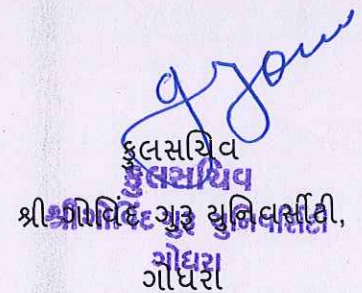 કુલસચિવ
કુલસચિવ
શ્રી ગોવિંદ ગુરૂ યુનિવર્સીટી,
શ્રી ગોવિંદ ગુરૂ યુનિવર્સિટી
ગોધરા
ગોધરા